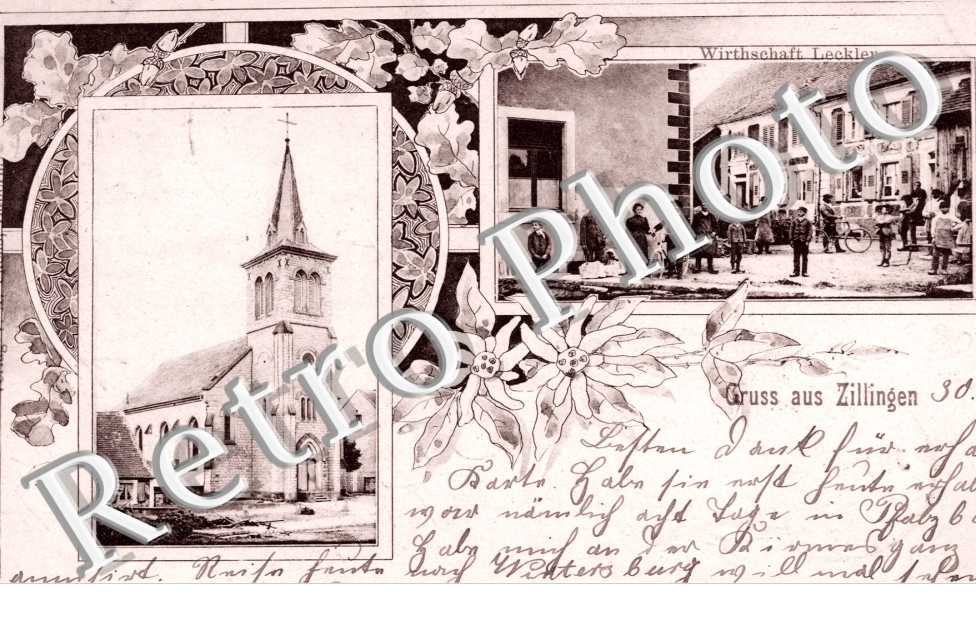 Wirthschaft Leckler
Retro Photo
Gruss aus Zillingen 30.
Besten Dank für erha
Karte. Habe sie erst heute erhal
war nämlich acht Tage in Pfalzb
Habe mich an der Kirmes ganz
amusirt. Reise heute nach Wintersburg will mal sehen